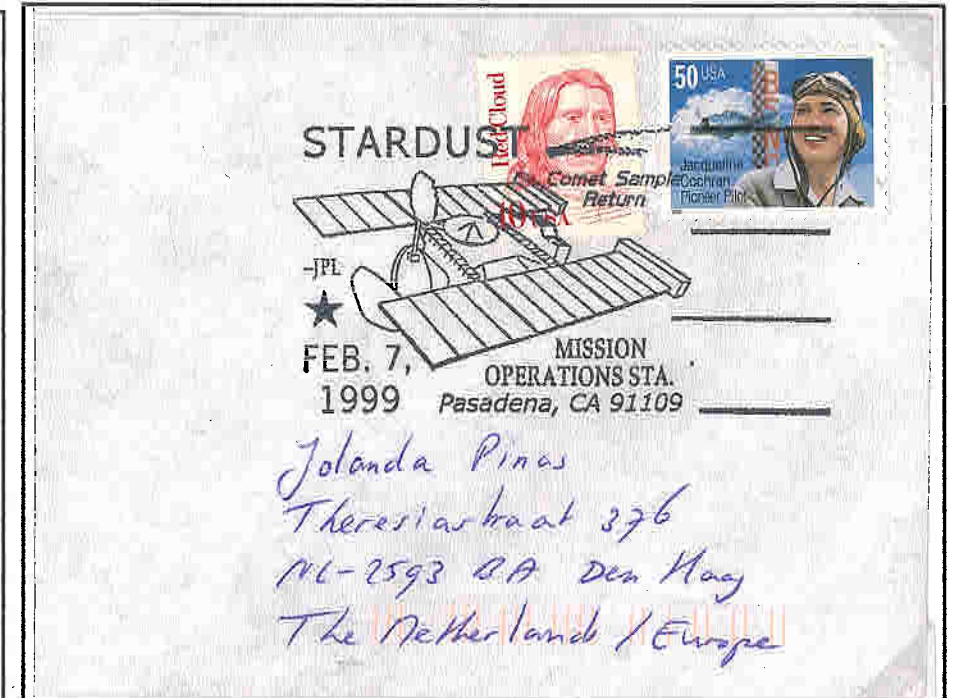 Red Cloud
10 USA
50 USA
BENDIX
Jacqueline
Cochran
Pioneer Pilot
STARDUST
Comet Sample
Return
-JPL
FEB. 7,
1999
MISSION
OPERATIONS STA.
Pasadena, CA 91109
Jolanda Pinas
Theresiastraat 376
NL-2593 BA Den Haag
The Netherlands / Europe